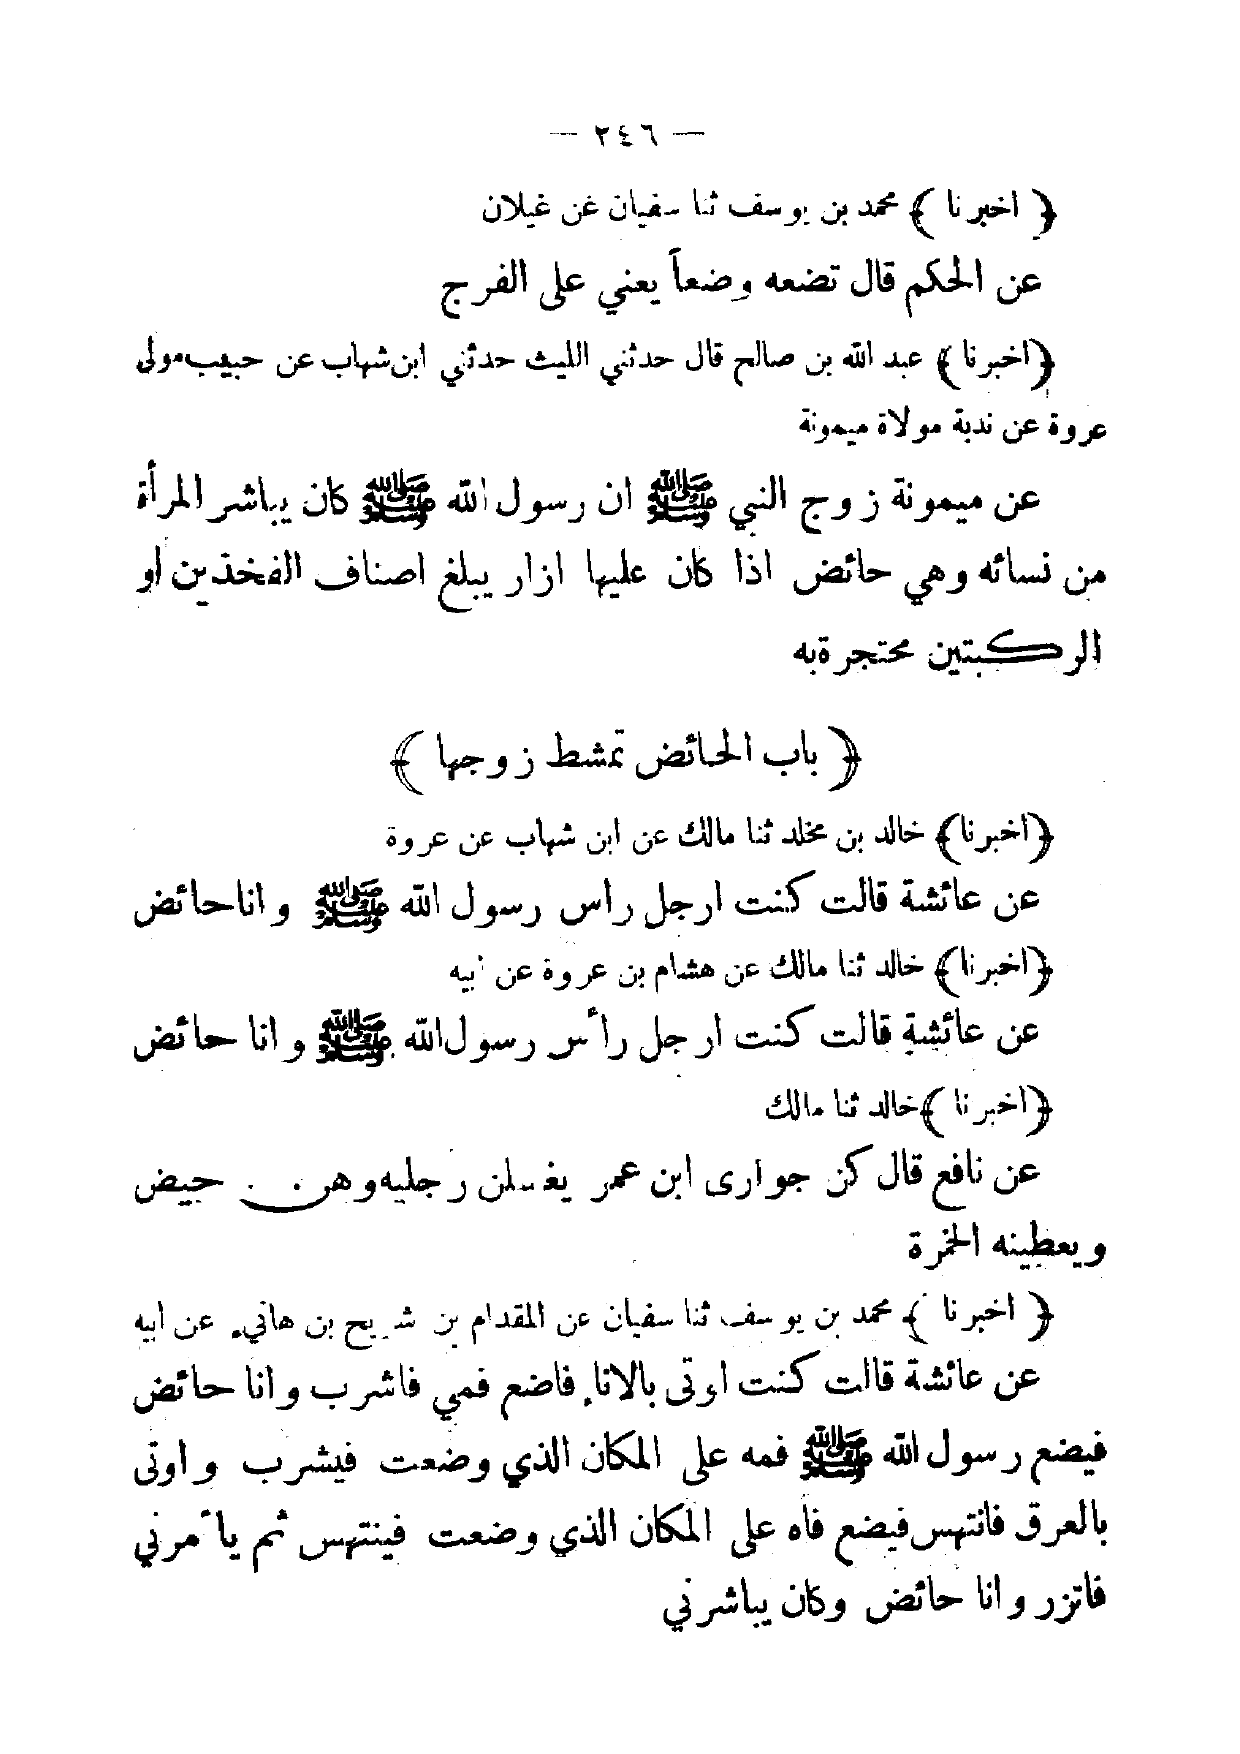 — ٢٤٦ —
﴿ اخبرنا ﴾ محمد بن يوسف ثنا سفيان عن غيلان
عن الحكم قال تضعه وضعاً يعني على الفرج
﴿اخبرنا﴾ عبد الله بن صالح قال حدثني الليث حدثني ابن شهاب عن حبيب مولى
عروة عن ندبة مولاة ميمونة
عن ميمونة زوج النبي ﷺ ان رسول الله ﷺ كان يباشر المرأة
من نسائه وهي حائض اذا كان عليها ازار يبلغ اصناف الفخذين او
الركبتين محتجرة به
﴿ باب الحائض تمشط زوجها ﴾
﴿اخبرنا﴾ خالد بن مخلد ثنا مالك عن ابن شهاب عن عروة
عن عائشة قالت كنت ارجل راس رسول الله ﷺ وانا حائض
﴿اخبرنا﴾ خالد ثنا مالك عن هشام بن عروة عن ابيه
عن عائشة قالت كنت ارجل رأس رسول الله ﷺ وانا حائض
﴿اخبرنا ﴾ خالد ثنا مالك
عن نافع قال كن جوارى ابن عمر يغسلن رجليه وهن حيض
ويعطينه الخمرة
﴿ اخبرنا ﴾ محمد بن يوسف ثنا سفيان عن المقدام بن شريح بن هانيء عن ابيه
عن عائشة قالت كنت اوتى بالاناء فاضع فمي فاشرب وانا حائض
فيضع رسول الله ﷺ فمه على المكان الذي وضعت فيشرب واوتى
بالعرق فانتهس فيضع فاه على المكان الذي وضعت فينتهس ثم يأمرني
فاتزر وانا حائض وكان يباشرني